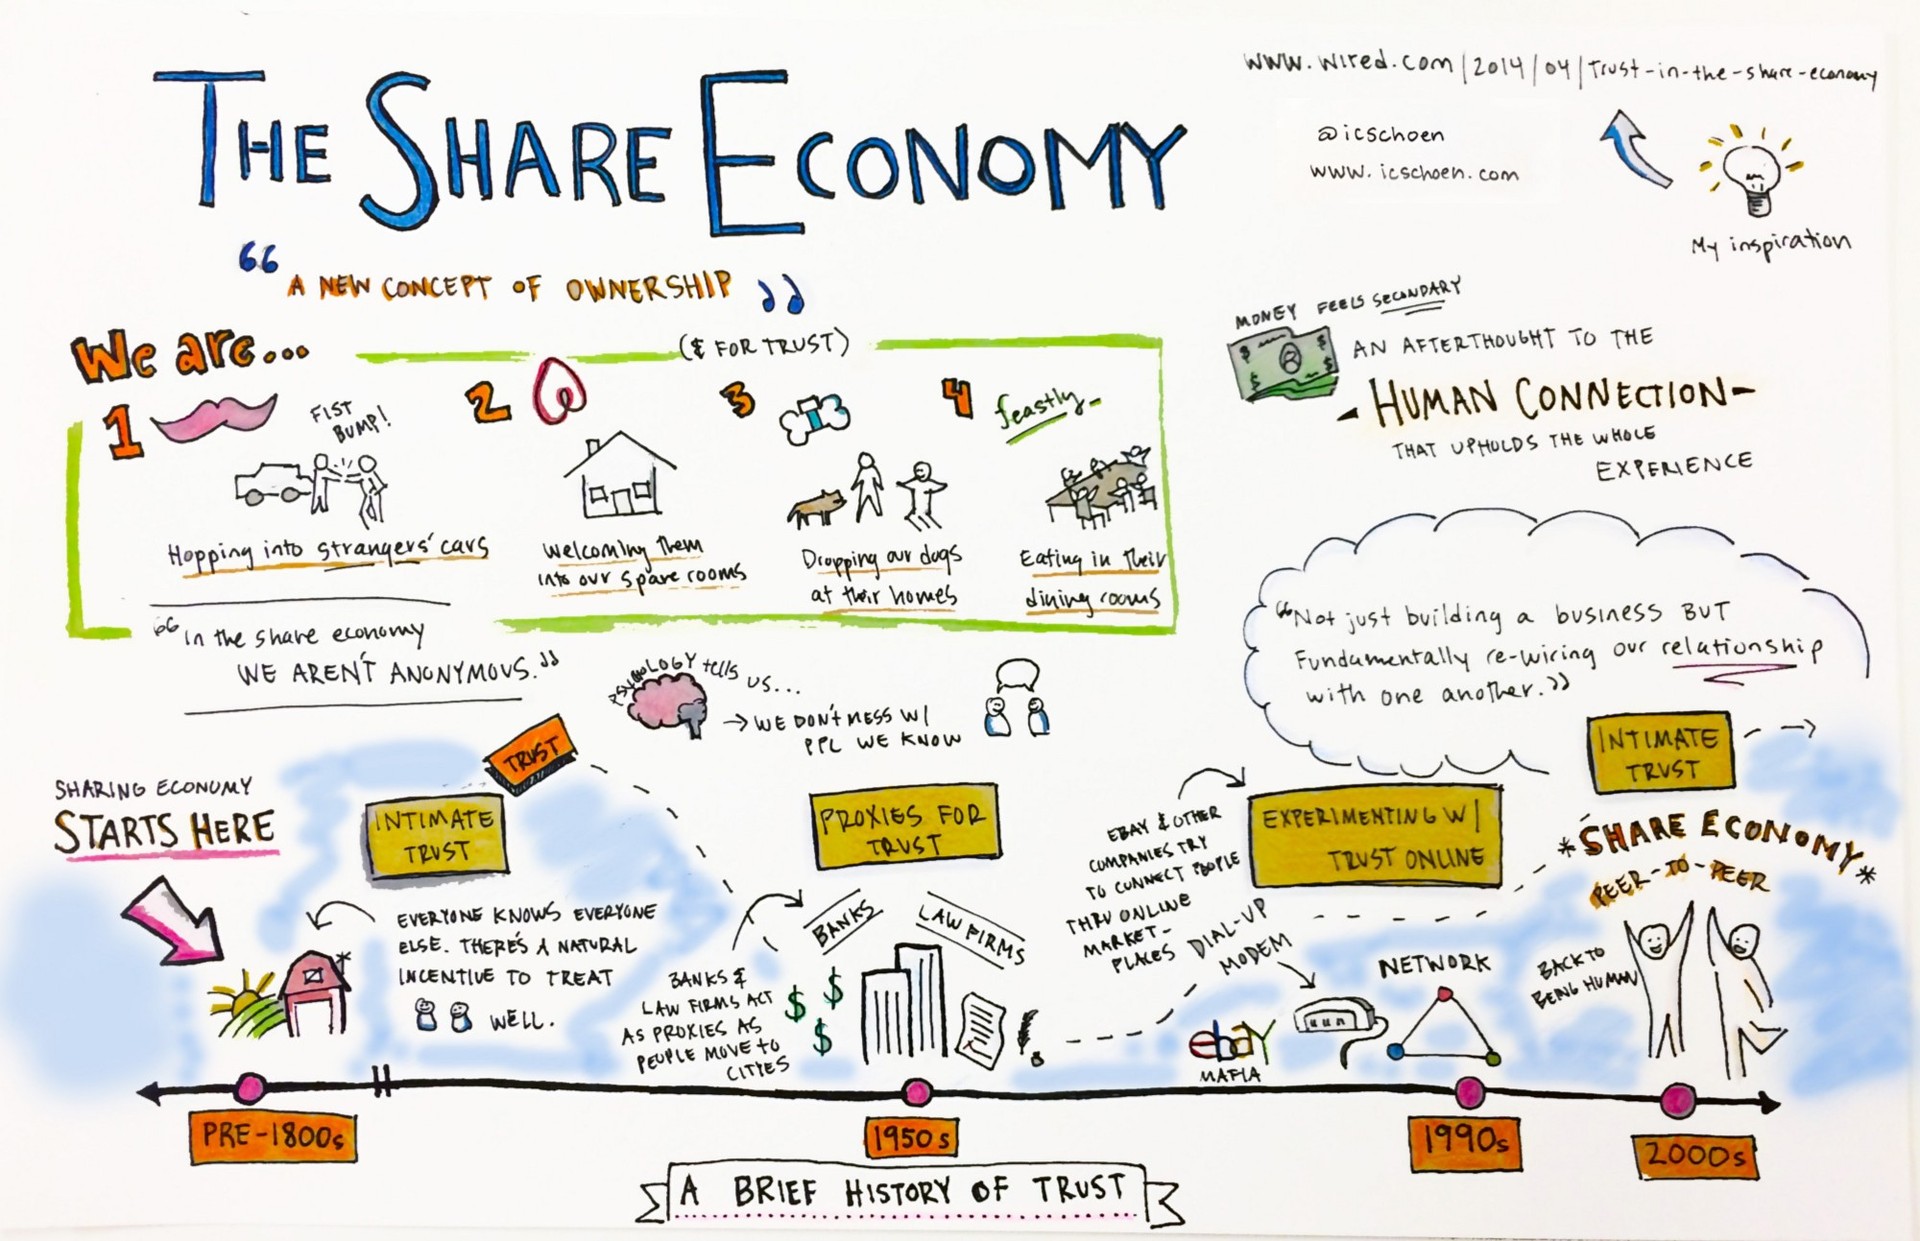 THE SHARE ECONOMY
www.wired.com/2014/04/trust-in-the-share-economy
@icschoen
www.icschoen.com
My inspiration
“A NEW CONCEPT OF OWNERSHIP”
We are...
(& FOR TRUST)
1
FIST
BUMP!
Hopping into strangers' cars
2
Welcoming them
into our spare rooms
3
Dropping our dogs
at their homes
4
feastly
Eating in their
dining rooms
MONEY FEELS SECONDARY
AN AFTERTHOUGHT TO THE
HUMAN CONNECTION
THAT UPHOLDS THE WHOLE
EXPERIENCE
“In the share economy
WE AREN'T ANONYMOUS.”
PSYCHOLOGY tells
us...
→ WE DON'T MESS W/
PPL WE KNOW
“Not just building a business BUT
Fundamentally re-wiring our relationship
with one another.”
SHARING ECONOMY
STARTS HERE
INTIMATE
TRUST
TRUST
EVERYONE KNOWS EVERYONE
ELSE. THERE'S A NATURAL
INCENTIVE TO TREAT
WELL.
PROXIES FOR
TRUST
BANKS
LAW FIRMS
BANKS &
LAW FIRMS ACT
AS PROXIES AS
PEOPLE MOVE TO
CITIES
$
$
$
EBAY & OTHER
COMPANIES TRY
TO CONNECT PEOPLE
THRU ONLINE
MARKET-
PLACES
EXPERIMENTING W/
TRUST ONLINE
DIAL-UP
MODEM
ebay
MAFIA
NETWORK
INTIMATE
TRUST
*SHARE ECONOMY*
PEER-TO-PEER
BACK TO
BEING HUMAN
PRE-1800s
1950s
1990s
2000s
A BRIEF HISTORY OF TRUST